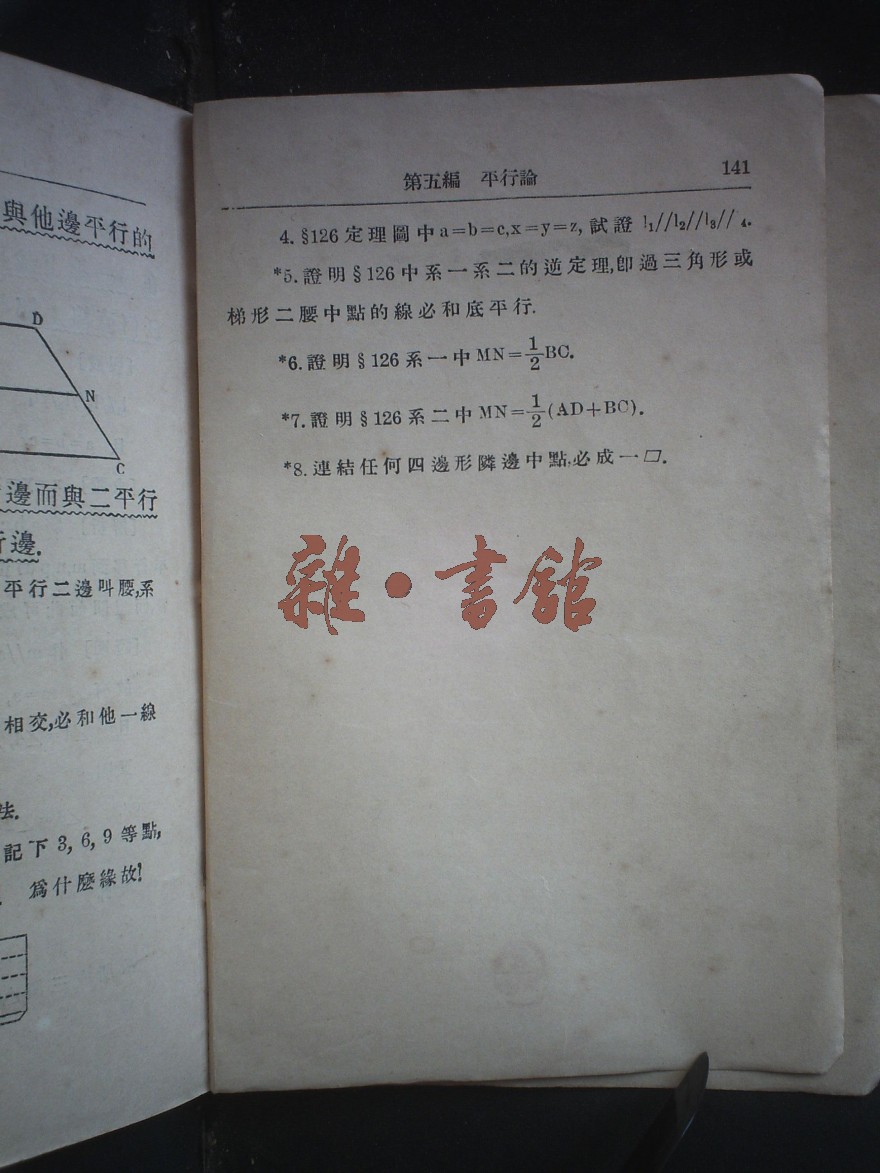 與他邊平行的
D
N
C
邊而與二平行
行邊.
平行二邊叫腰,系
相交,必和他一線
法.
記下 3, 6, 9 等點,
爲什麽緣故!
第五編 平行論 141
4. §126 定理圖中 a=b=c, x=y=z, 試證 l₁//l₂//l₃// ₄.
*5. 證明 §126 中系一系二的逆定理,卽過三角形或
梯形二腰中點的線必和底平行.
*6. 證明 §126 系一中 MN=1/2BC.
*7. 證明 §126 系二中 MN=1/2(AD+BC).
*8. 連結任何四邊形隣邊中點,必成一▱.
雜·書館